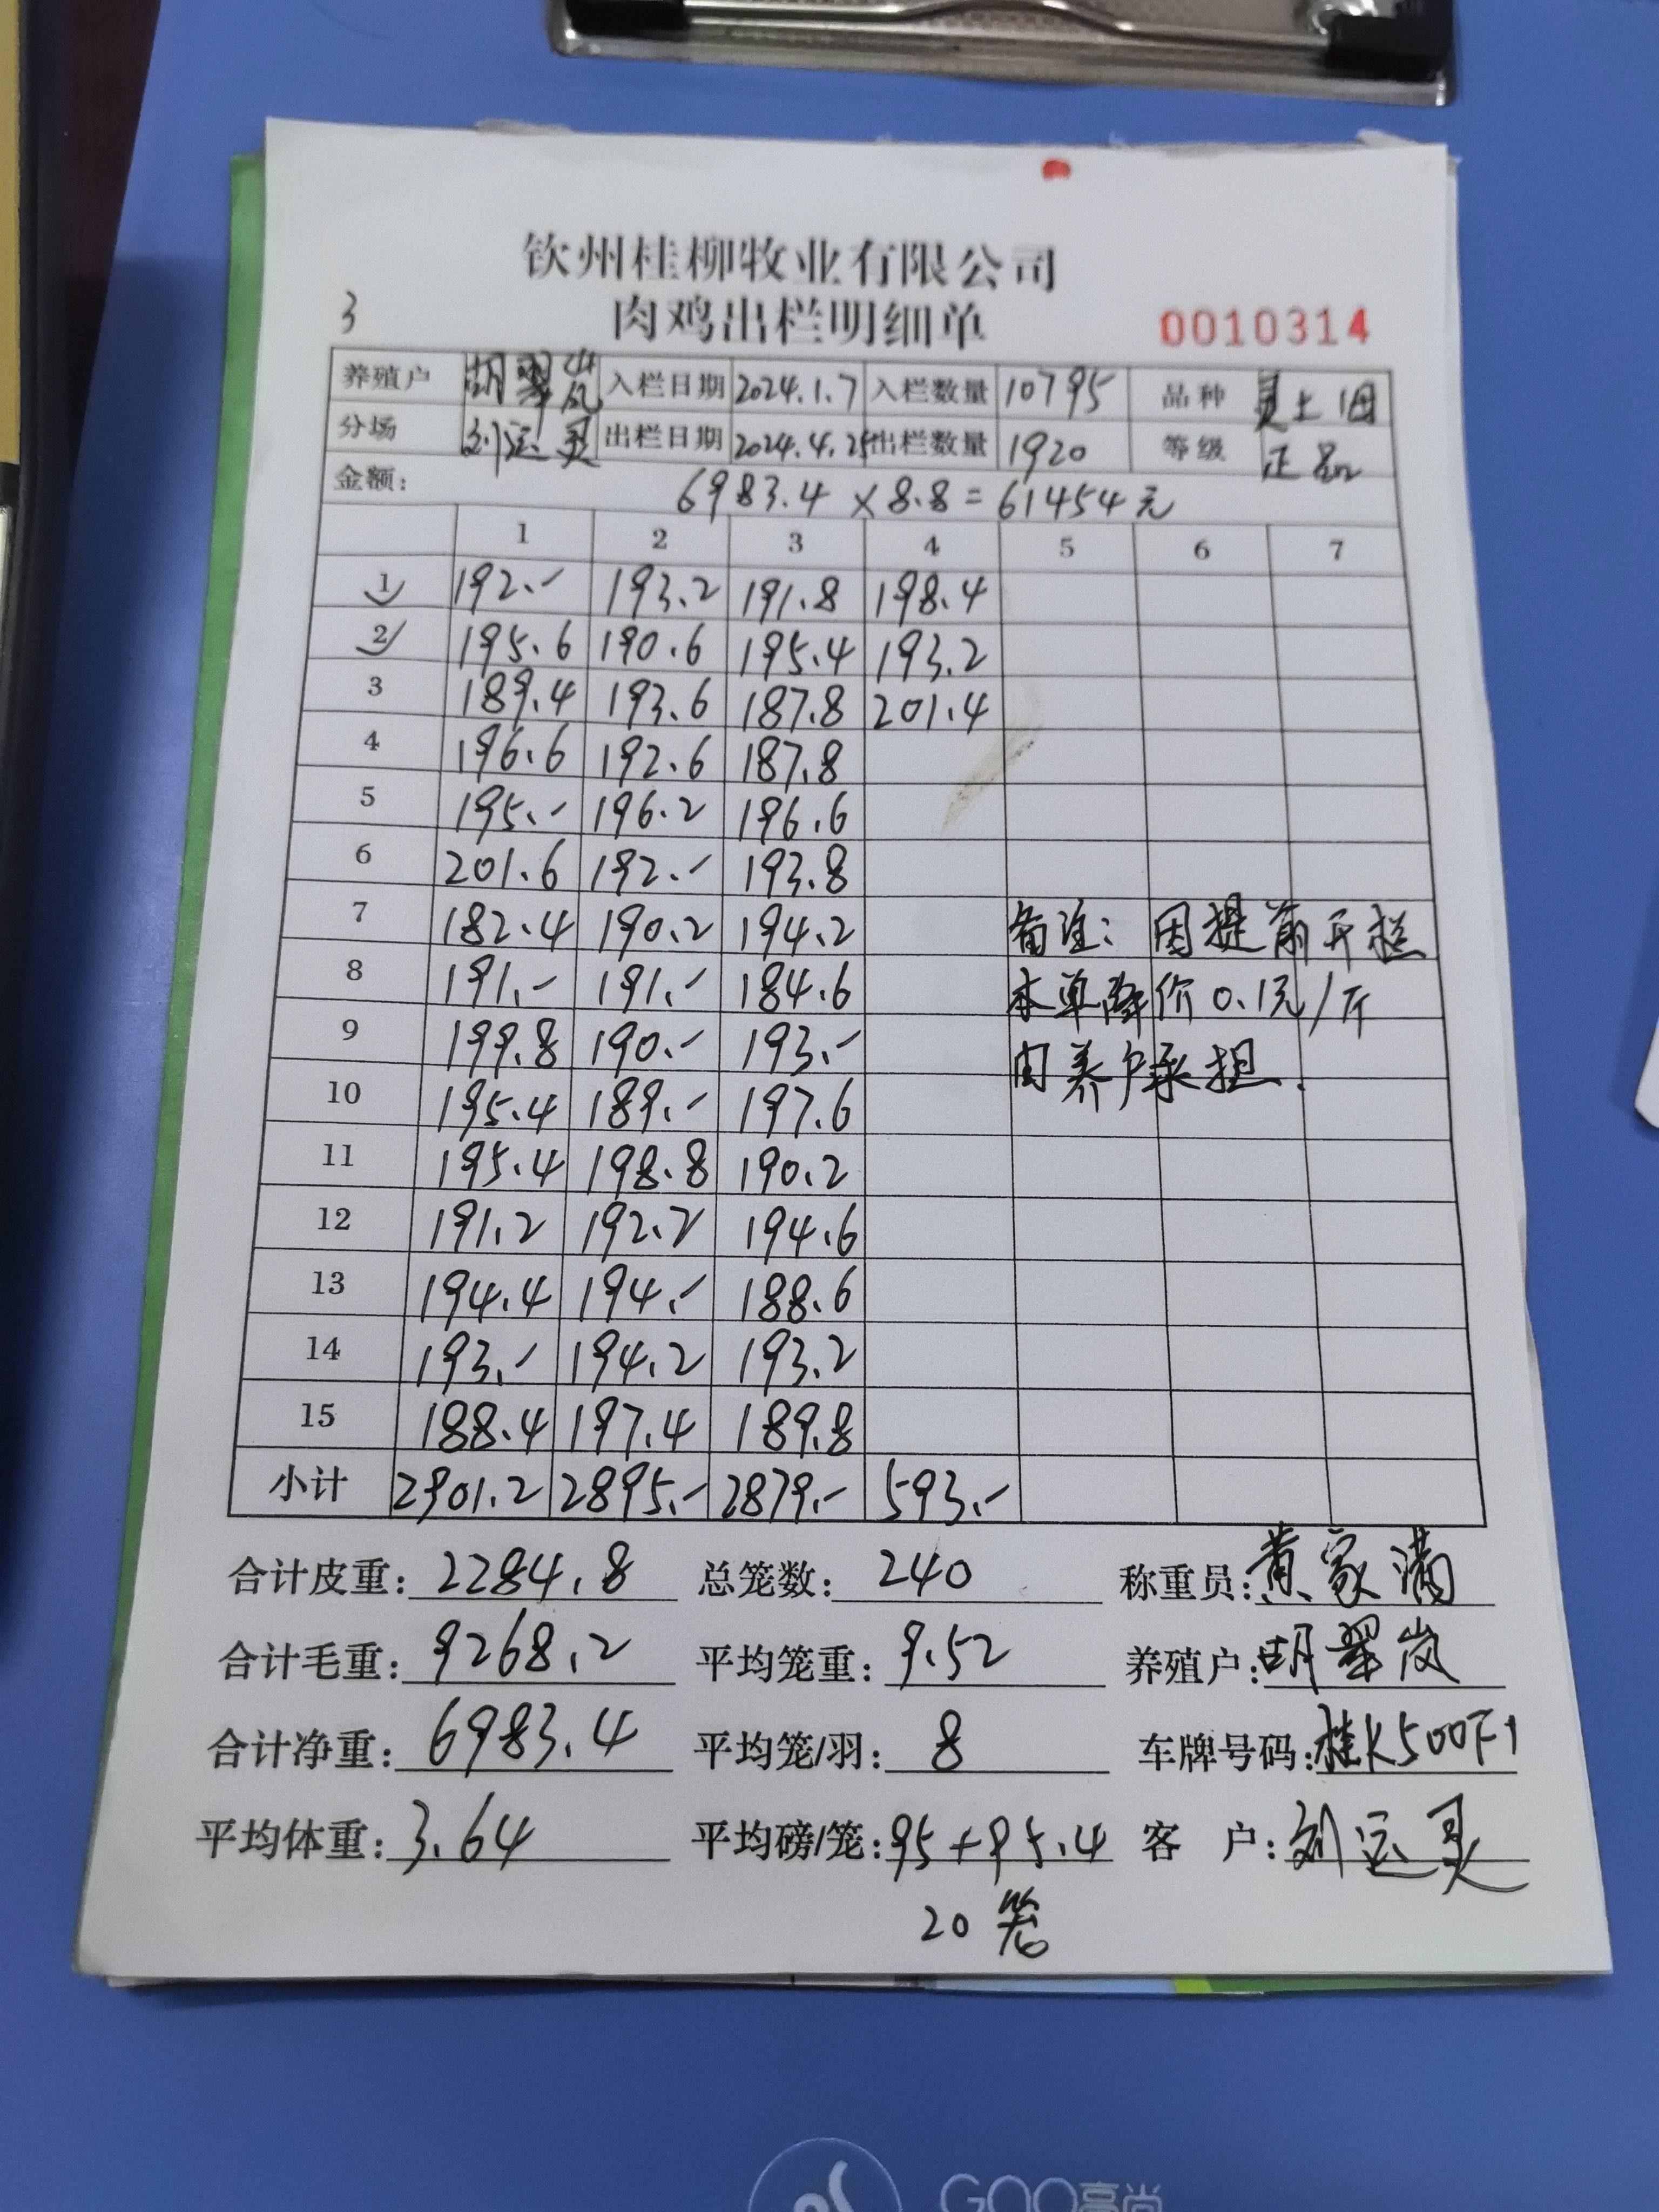 钦州桂柳牧业有限公司
3 肉鸡出栏明细单 0010314
养殖户 胡翠岚 入栏日期 2024.1.7 入栏数量 10795 品种 土
分场 刘运灵 出栏日期 2024.4.25 出栏数量 1920 等级 正品
金额: 6983.4 × 8.8 = 61454元
1 2 3 4 5 6 7
1 192.- 193.2 191.8 198.4
2 195.6 190.6 195.4 193.2
3 189.4 193.6 187.8 201.4
4 196.6 192.6 187.8
5 195.- 196.2 196.6
6 201.6 192.- 193.8
7 182.4 190.2 194.2 备注: 因提前开栏
8 191.- 191.- 184.6 本单降价0.1元/斤
9 199.8 190.- 193.- 由养户承担.
10 195.4 189.- 197.6
11 195.4 198.8 190.2
12 191.2 192.2 194.6
13 194.4 194.- 188.6
14 193.- 194.2 193.2
15 188.4 197.4 189.8
小计 2901.2 2895.- 2879.- 593.-
合计皮重: 2284.8 总笼数: 240 称重员: 黄家满
合计毛重: 9268.2 平均笼重: 9.52 养殖户: 胡翠岚
合计净重: 6983.4 平均笼/羽: 8 车牌号码: 桂K500F1
平均体重: 3.64 平均磅/笼: 95+95.4 客 户: 刘运灵
20笼
GOO高尚